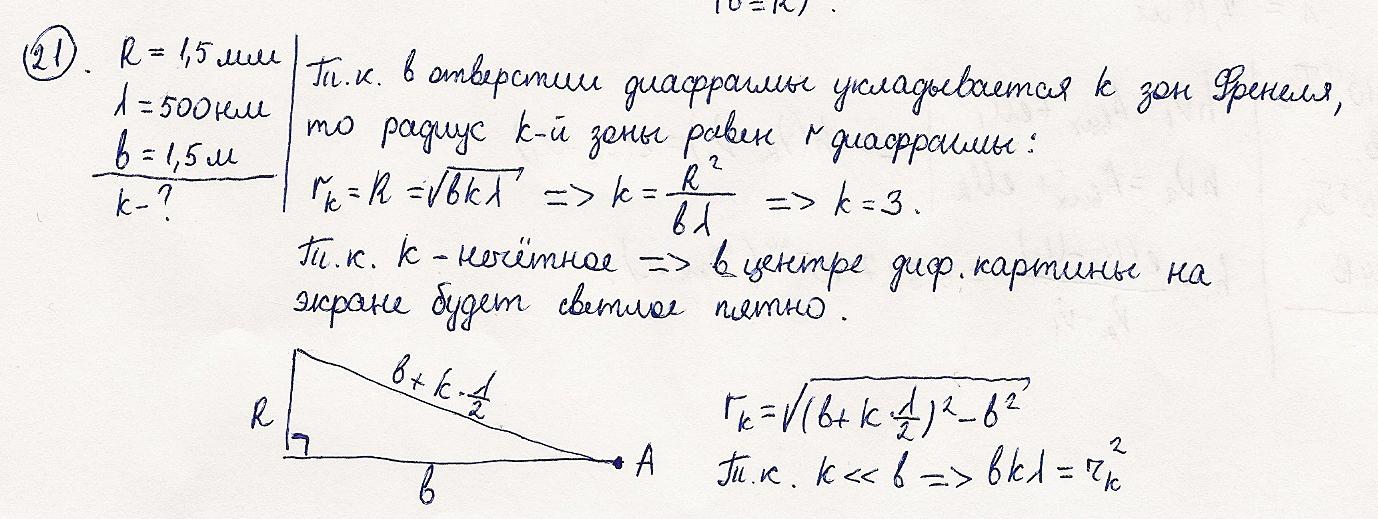 (b = R) .
21. R = 1,5 мм
λ = 500 нм
b = 1,5 м
k - ?
Т.к. в отверстии диафрагмы укладывается k зон Френеля,
то радиус k-й зоны равен r диафрагмы:
r_k = R = √(bkλ) => k = R²/(bλ) => k = 3.
Т.к. k - нечётное => в центре диф. картины на
экране будет светлое пятно.
b + k·λ/2
R
b
A
r_k = √((b + k·λ/2)² - b²)
Т.к. k << b => bkλ = r_k²